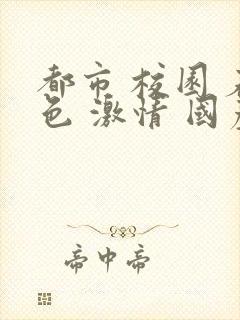 都市 校園
色 激情 國
帝中帝